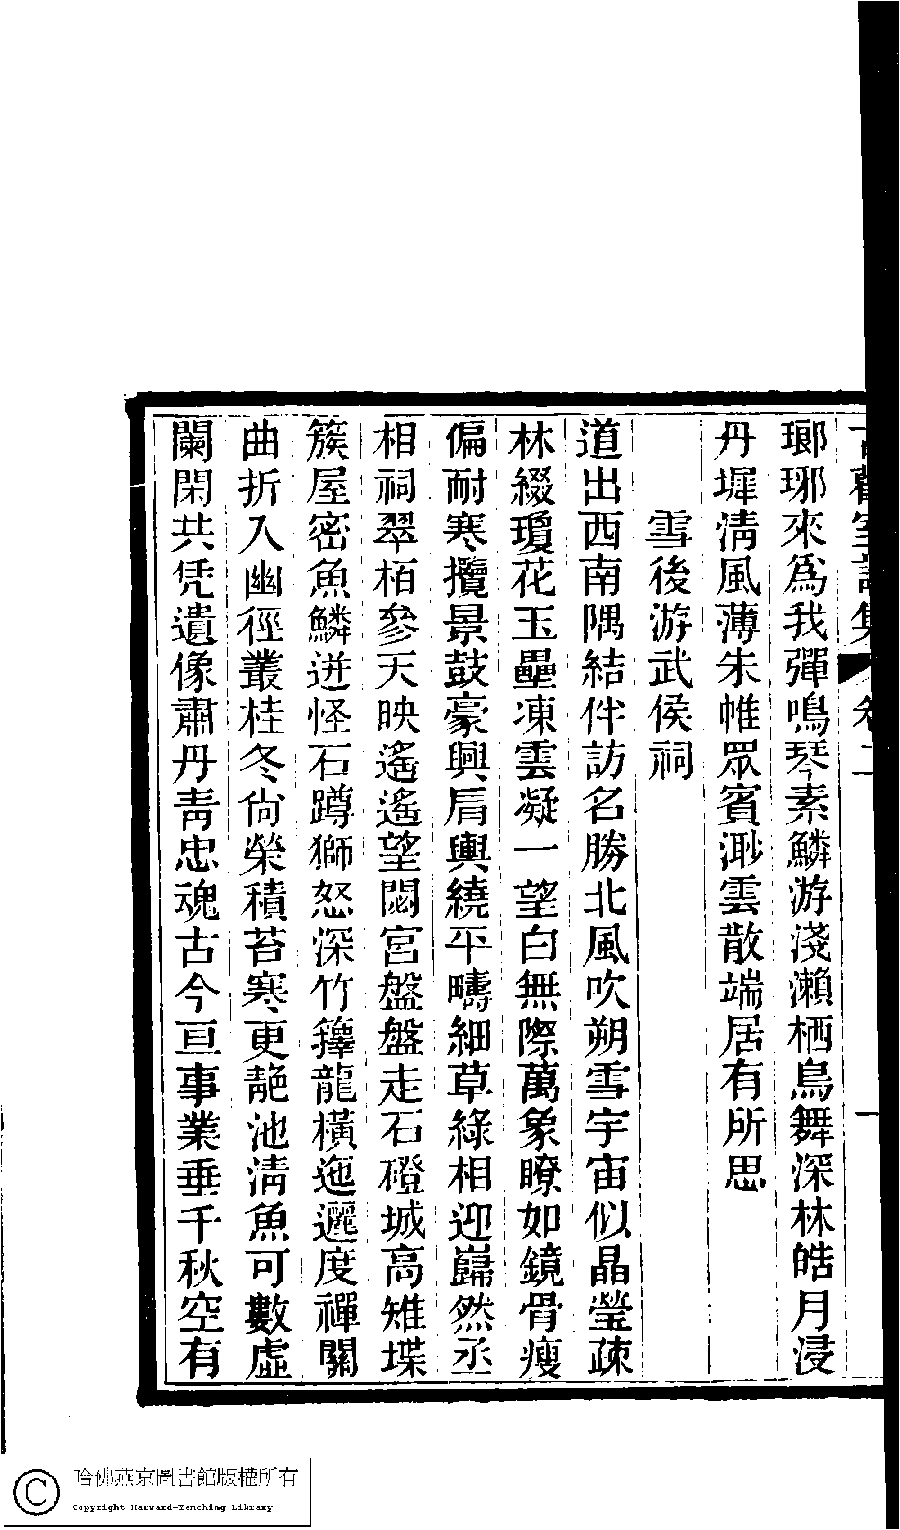 瑯琊來為我彈鳴琴素鱗游淺瀨栖鳥舞深林皓月浸
丹墀淸風薄朱帷眾賓渺雲散端居有所思
雪後游武侯祠
道出西南隅結伴訪名勝北風吹朔雪宇宙似晶瑩疎
林綴瓊花玉壘凍雲凝一望白無際萬象瞭如鏡骨瘦
偏耐寒攬景鼓豪興肩輿繞平疇細草綠相迎巋然丞
相祠翠栢參天映遙遙望閟宮盤盤走石磴城高雉堞
簇屋密魚鱗迸怪石蹲獅怒深竹籜龍橫迤邐度禪關
曲折入幽徑叢桂冬尙榮積苔寒更靘池淸魚可數虛
闌閑共凭遺像肅丹靑忠魂古今亘事業垂千秋空有
哈佛燕京圖書館版權所有
Copyright Harvard-Yenching Library